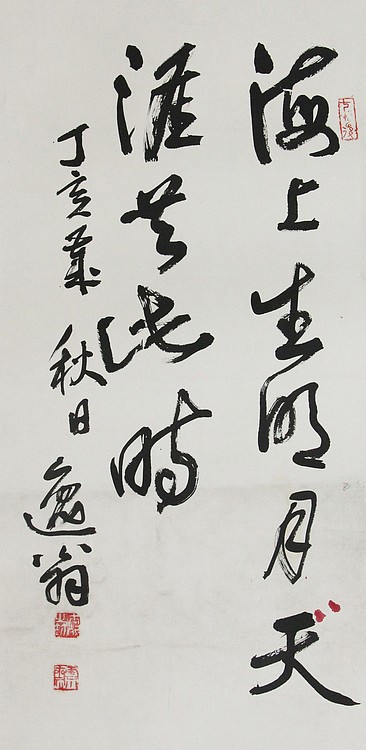 海上生明月天
涯共此时
丁亥岁 秋日 逸翁